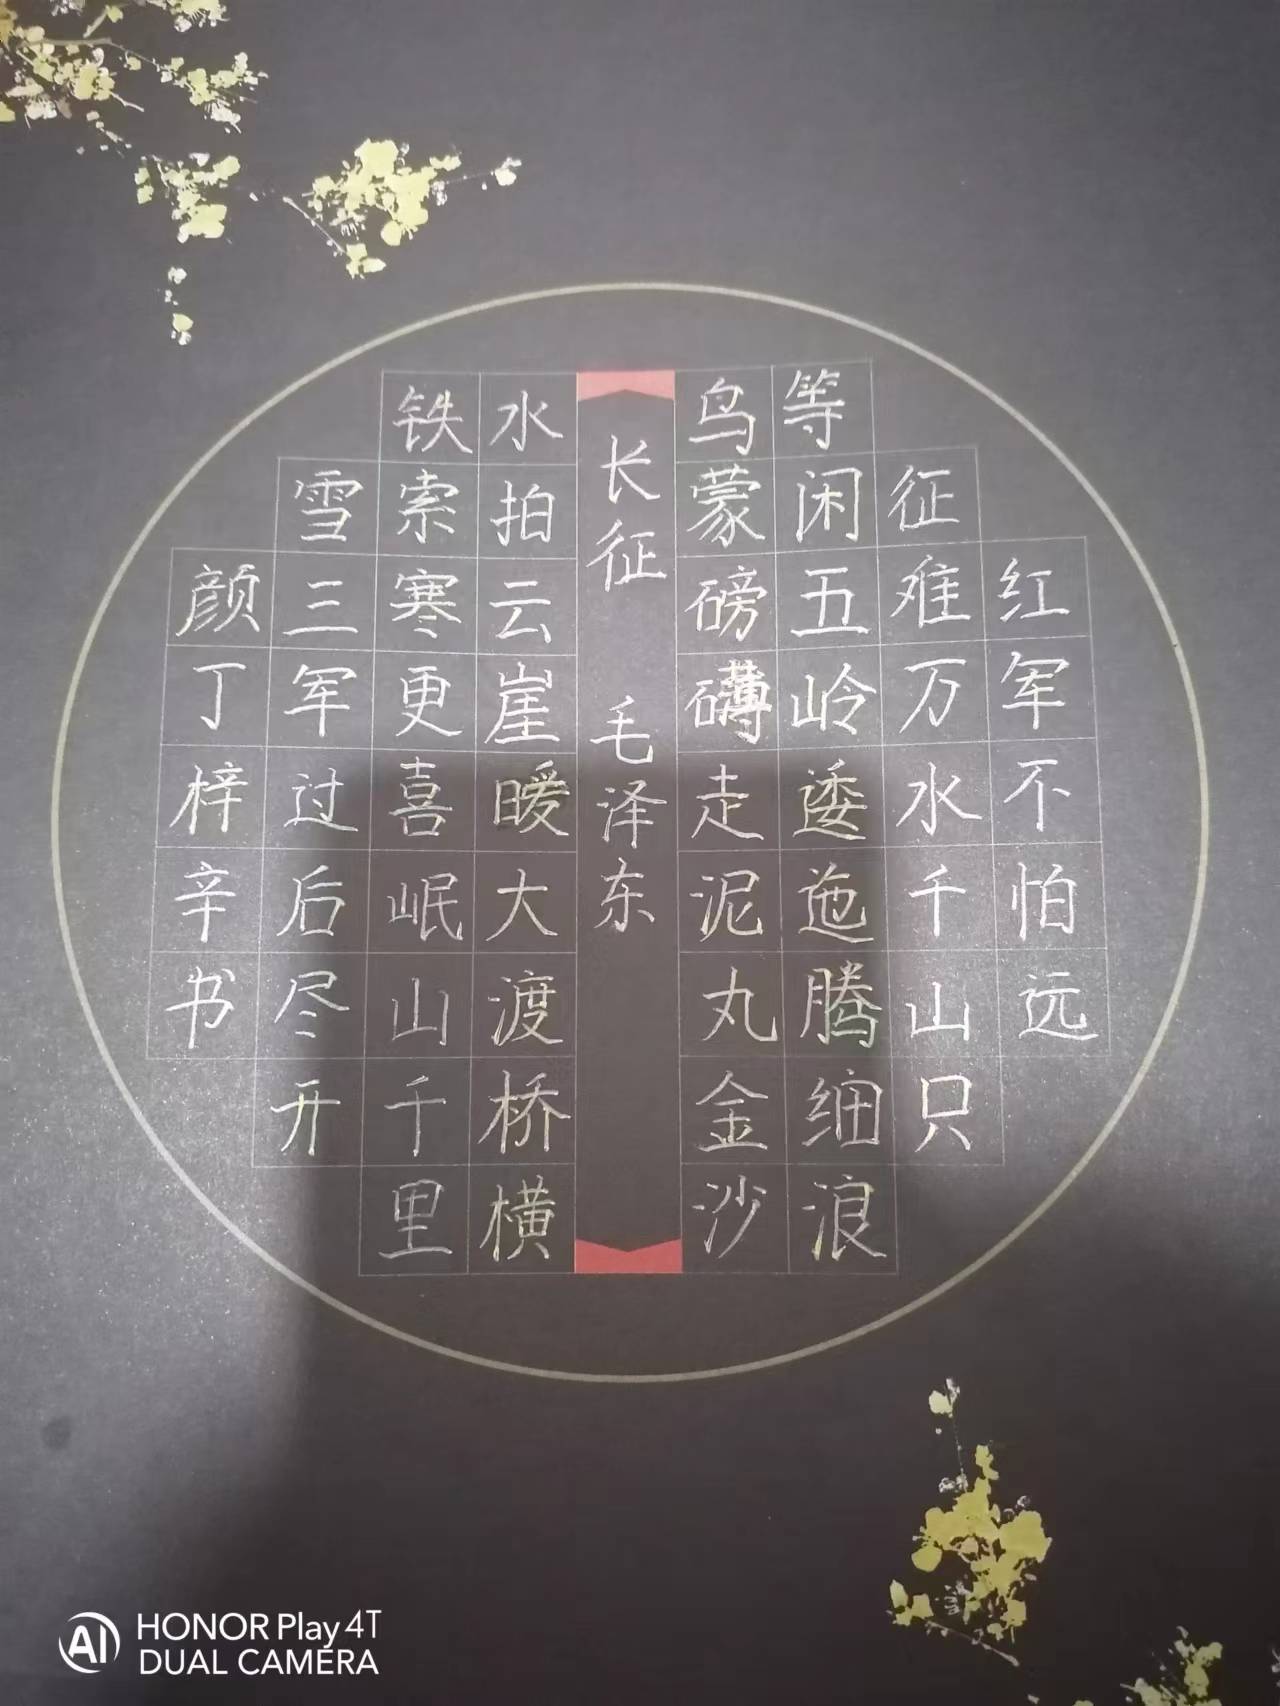 红军不怕远
征难万水千山只
等闲五岭逶迤腾细浪
鸟蒙磅礴走泥丸金沙
长征 毛泽东
水拍云崖暖大渡桥横
铁索寒更喜岷山千里
雪三军过后尽开
颜丁梓辛书
AI HONOR Play 4T
DUAL CAMERA